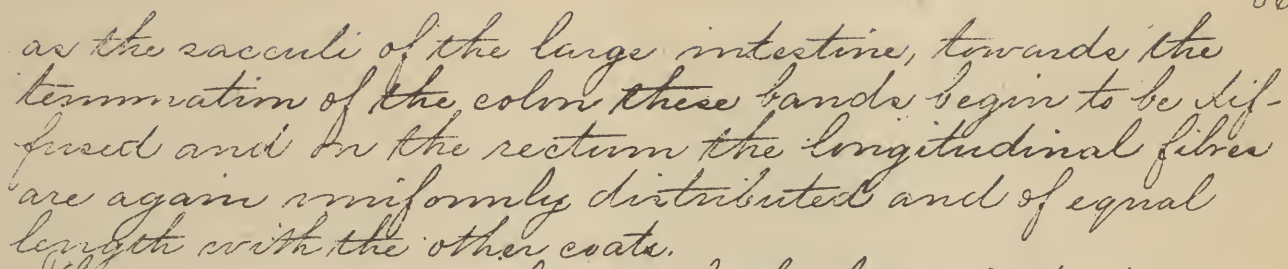 as the sacculi of the large intestine, towards the
termination of the colon these bands begin to be dif-
fused and on the rectum the longitudinal fibres
are again uniformly distributed and of equal
length with the other coats.